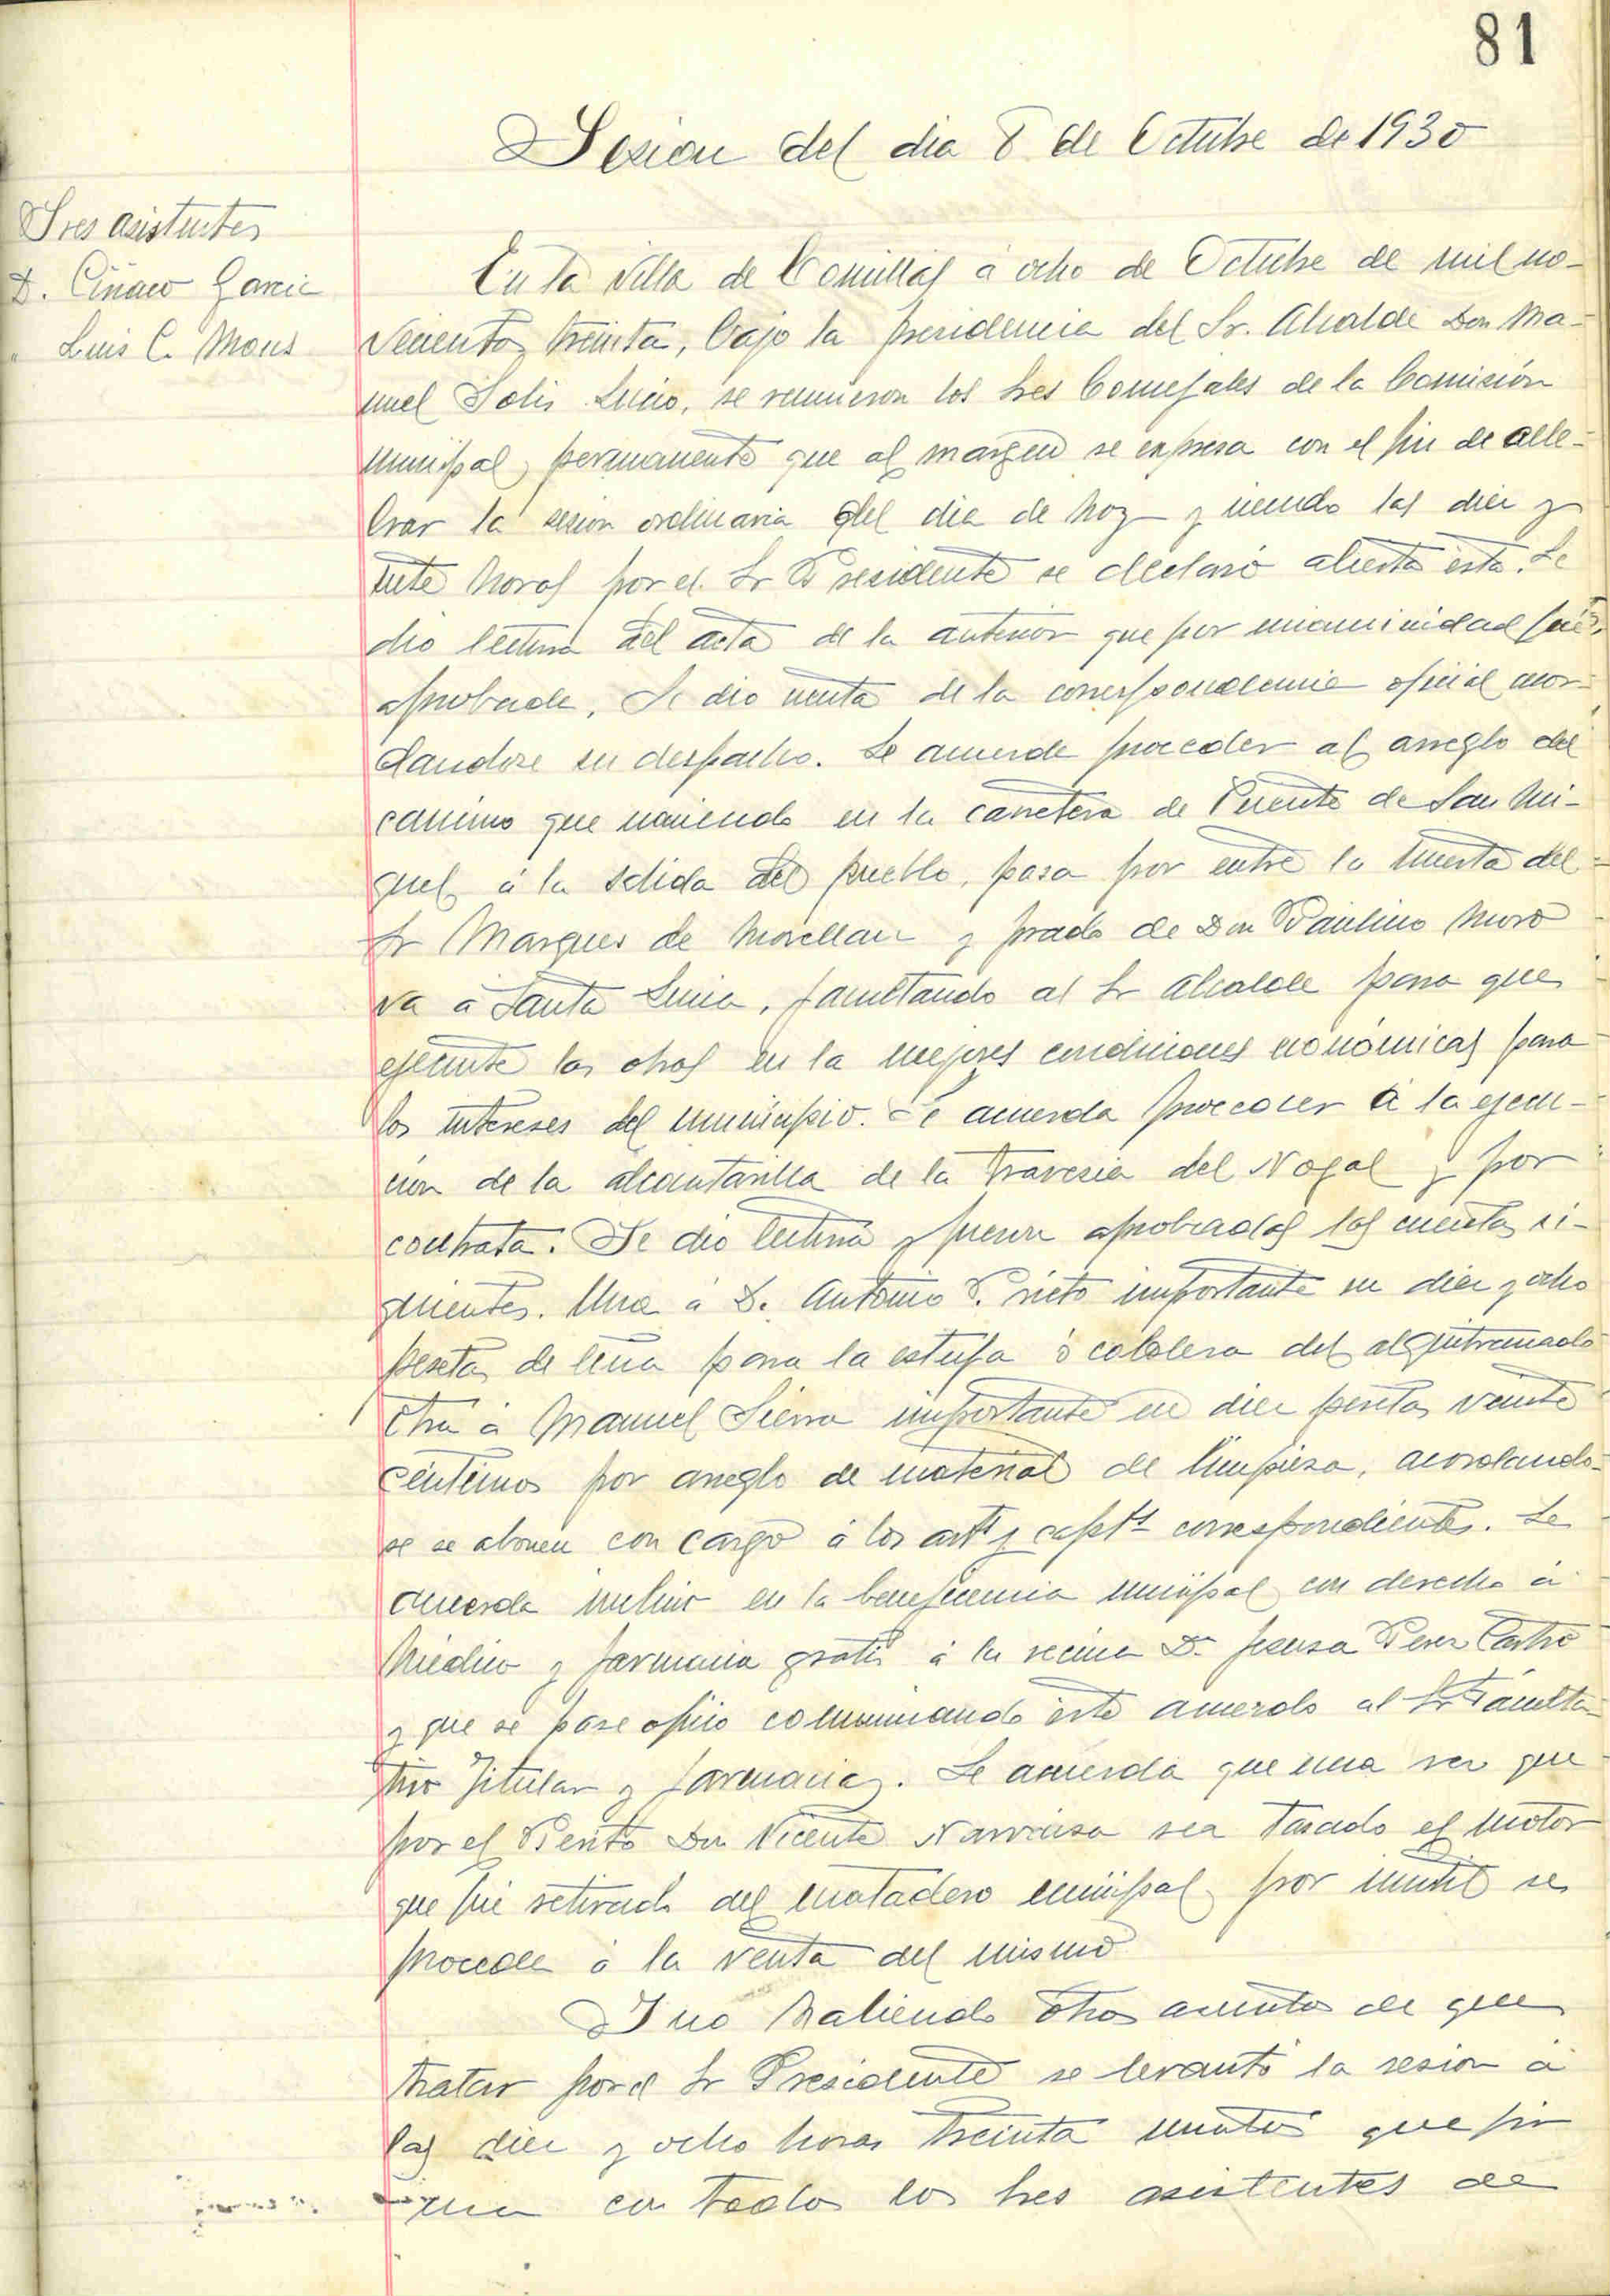 81
Sesion del dia 8 de Octubre de 1930
Sres asistentes
D. Ciriaco Garcia
" Luis C. Mons
En la Villa de Comillas á ocho de Octubre de mil no-
vecientos treinta, bajo la presidencia del Sr. Alcalde Don Ma-
nuel Solis Lucio, se reunieron los Sres Concejales de la Comisión
municipal permanente que al margen se expresa con el fin de cele-
brar la sesion ordinaria del dia de hoy y siendo las diez y
siete horas por el Sr Presidente se declaró abierta esta. Se
dio lectura del acta de la anterior que por unanimidad fué
aprobada. Se dio cuenta de la correspondencia oficial acor-
dandose su despacho. Se acuerda proceder al arreglo del
camino que naciendo en la carretera de Puente de San Mi-
guel á la salida del pueblo, pasa por entre la huerta del
Sr Marques de Movellan y prado de Don Paulino Moro
va á Santa Lucia, facultando al Sr Alcalde para que
ejecute las obras en la mejores condiciones económicas para
los intereses del municipio. Se acuerda proceder á la ejecu-
cion de la alcantarilla de la travesia del Nogal y por
contrata. Se dio lectura y fueron aprobadas las cuentas si-
guientes. Una á D. Antonio P. Nieto importante en diez y ocho
pesetas de leña para la estufa ó caldera del alquitranado
otra á Manuel Sierra importante en diez pesetas veinte
centimos por arreglo de material de limpieza, acordando-
se se abonen con cargo á los artˢ y captˢ correspondientes. Se
acuerda incluir en la beneficencia municipal con derecho á
Médico y farmacia gratis á la vecina Dª Jesusa Perez Castro
y que se pase oficio comunicando este acuerdo al Sr Faculta-
tivo Titular y farmacia. Se acuerda que una vez que
por el Perito Don Vicente sea tasado el motor
que fué retirado del matadero municipal por inutil se
proceda á la venta del mismo
Y no habiendo otros asuntos de que
tratar por el Sr Presidente se levantó la sesion á
las diez y ocho horas treinta minutos que fir
ma con todos los Sres asistentes de